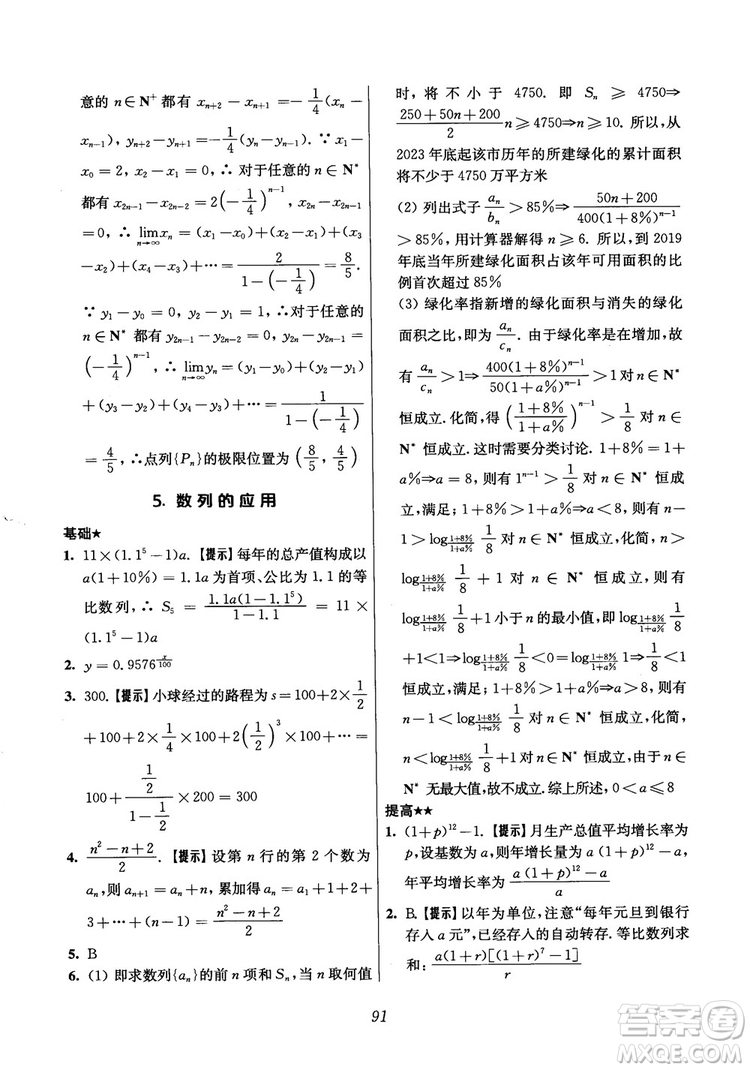 意的 n∈N⁺ 都有 xₙ₊₂－xₙ₊₁＝－1/4(xₙ－
xₙ₋₁)，(yₙ₊₂－yₙ₊₁)＝－1/4(yₙ－yₙ₋₁)．∵ x₁－
x₀＝2，x₂－x₁＝0，∴ 对于任意的 n∈N*
都有 x₂ₙ₋₁－x₂ₙ₋₂＝2(－1/4)ⁿ⁻¹，x₂ₙ－x₂ₙ₋₁
＝0，∴ lim(n→∞) xₙ＝(x₁－x₀)＋(x₂－x₁)＋(x₃
－x₂)＋(x₄－x₃)＋⋯＝2/(1－(－1/4))＝8/5．
∵ y₁－y₀＝0，y₂－y₁＝1，∴对于任意的
n∈N* 都有 y₂ₙ₋₁－y₂ₙ₋₂＝0，y₂ₙ－y₂ₙ₋₁＝
(－1/4)ⁿ⁻¹，∴ lim(n→∞) yₙ＝(y₁－y₀)＋(y₂－y₁)
＋(y₃－y₂)＋(y₄－y₃)＋⋯＝1/(1－(－1/4))
＝4/5，∴点列{Pₙ}的极限位置为(8/5，4/5)
5. 数列的应用
基础★
1. 11×(1.1⁵－1)a．【提示】每年的总产值构成以
a(1＋10%)＝1.1a为首项、公比为1.1的等
比数列，∴ S₅＝1.1a(1－1.1⁵)/(1－1.1)＝11×
(1.1⁵－1)a
2. y＝0.9576^(x/100)
3. 300．【提示】小球经过的路程为 s＝100＋2×1/2
＋100＋2×1/4×100＋2×(1/2)³×100＋⋯＝
100＋(1/2)/(1－1/2)×200＝300
4. (n²－n＋2)/2．【提示】设第 n 行的第 2 个数为
aₙ，则 aₙ₊₁＝aₙ＋n，累加得 aₙ＝a₁＋1＋2＋
3＋⋯＋(n－1)＝(n²－n＋2)/2
5. B
6. (1) 即求数列{aₙ}的前 n 项和 Sₙ，当 n 取何值
时，将不小于 4750．即 Sₙ ≥ 4750⇒
(250＋50n＋200)/2 n≥4750⇒n≥10．所以，从
2023 年底起该市历年的所建绿化的累计面积
将不少于 4750 万平方米
(2) 列出式子 aₙ/bₙ＞85%⇒(50n＋200)/(400(1＋8%)ⁿ⁻¹)
＞85%，用计算器解得 n≥6．所以，到 2019
年底当年所建绿化面积占该年可用面积的比
例首次超过 85%
(3) 绿化率指新增的绿化面积与消失的绿化
面积之比，即为 aₙ/cₙ．由于绿化率在增加，故
有 aₙ/cₙ＞1⇒400(1＋8%)ⁿ⁻¹/(50(1＋a%)ⁿ⁻¹)＞1对 n∈N*
恒成立．化简，得((1＋8%)/(1＋a%))ⁿ⁻¹＞1/8 对 n∈
N* 恒成立．这时需要分类讨论．1＋8%＝1＋
a%⇒a＝8，则有 1ⁿ⁻¹＞1/8 对 n∈N* 恒成
立，满足；1＋8%＞1＋a%⇒a＜8，则有 n－
1＞log_((1＋8%)/(1＋a%)) 1/8 对 n∈N* 恒成立，化简，n＞
log_((1＋8%)/(1＋a%)) 1/8 ＋1 对 n∈N* 恒成立，所以
log_((1＋8%)/(1＋a%)) 1/8＋1小于 n 的最小值，即log_((1＋8%)/(1＋a%)) 1/8
＋1＜1⇒log_((1＋8%)/(1＋a%)) 1/8＜0＝log_((1＋8%)/(1＋a%)) 1 恒
成立，满足；1＋8%＜1＋a%⇒a＞8，则有
n－1＜log_((1＋8%)/(1＋a%)) 1/8 对 n∈N* 恒成立，化简，
n＜log_((1＋8%)/(1＋a%)) 1/8＋1 对 n∈N* 恒成立，由于
N* 无最大值，故不成立．综上所述，0＜a≤8
提高★★
1. (1＋p)¹²－1．【提示】月生产总值平均增长率为
p，设基数为 a，则年增长量为 a(1＋p)¹²－a，
年平均增长率为 (a(1＋p)¹²－a)/a
2. B．【提示】以年为单位，注意“每年元旦到银行
存入 a 元”，已经存入的自动转存．等比数列求
和：a(1＋r)[(1＋r)⁷－1]/r
91
答案圈
MXQE.COM